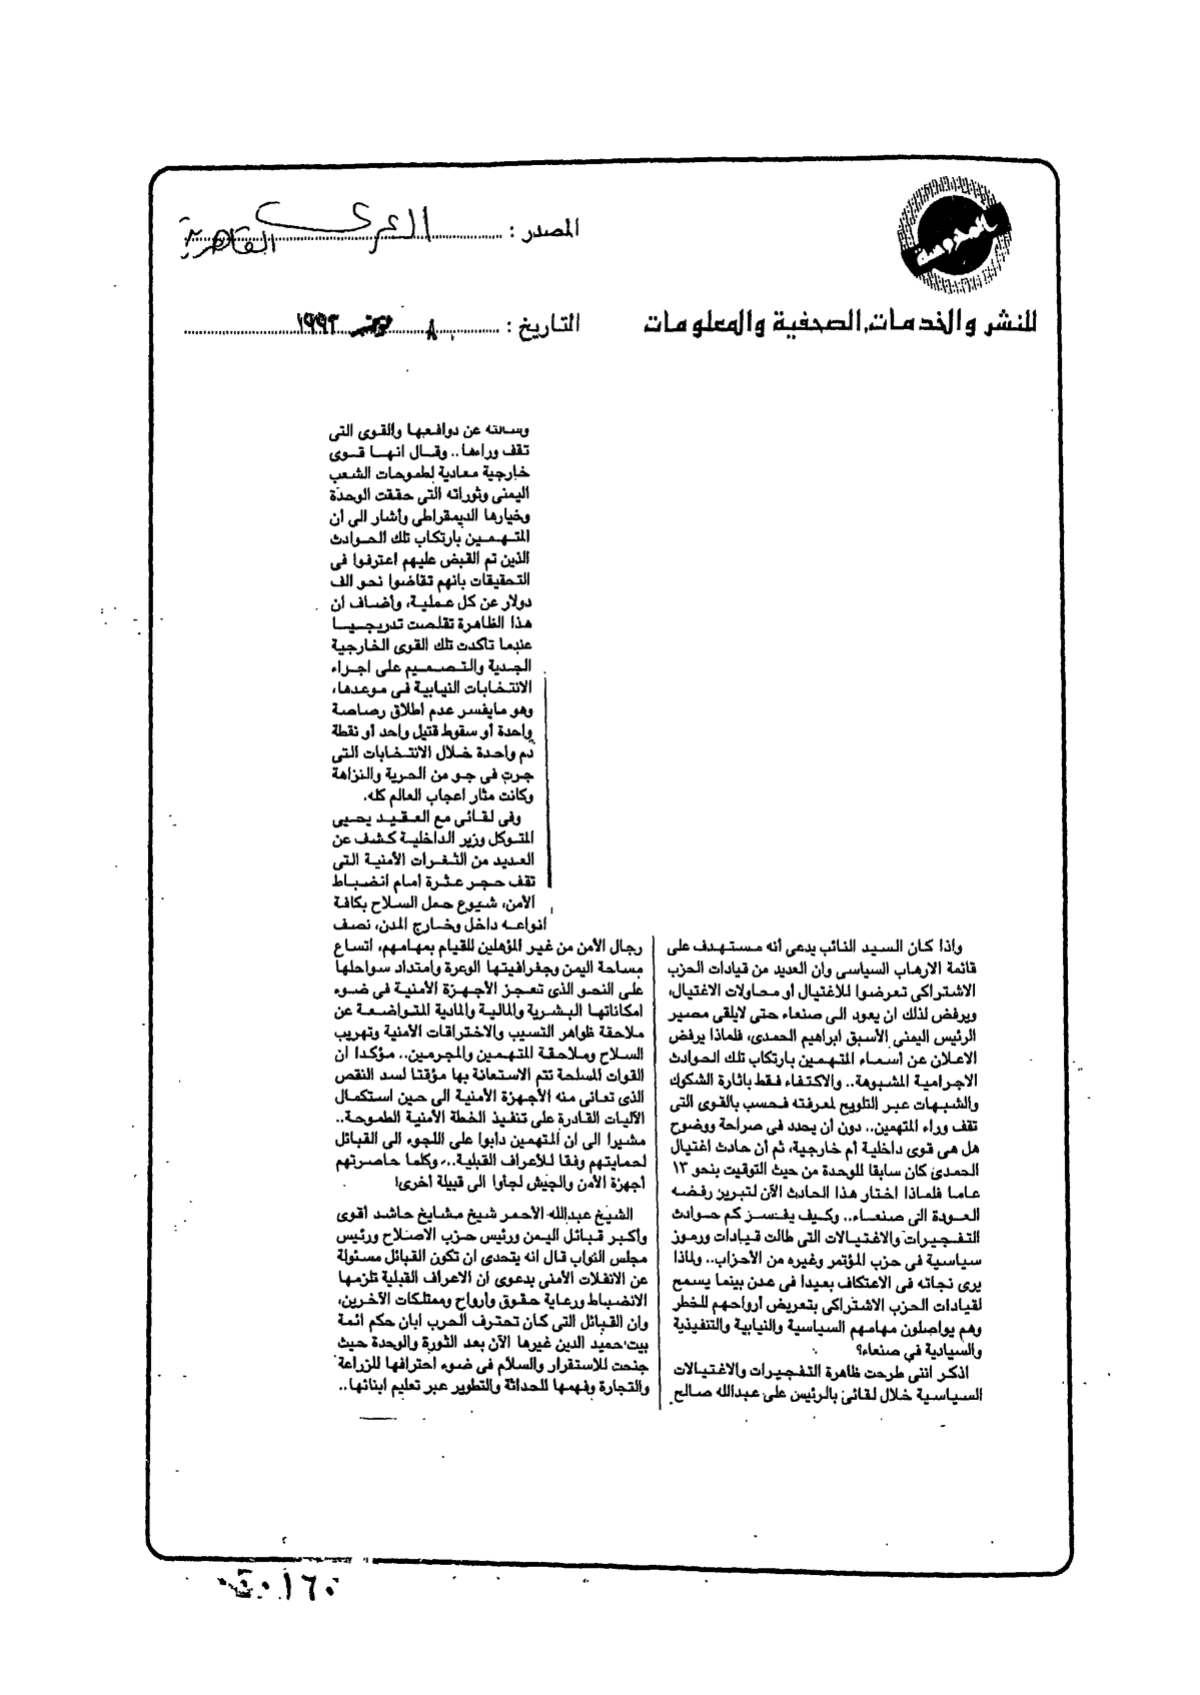 المحروسة
المصدر : العربى القاهرية
للنشر والخدمات الصحفية والمعلومات
التاريخ : ٨ نوفمبر ١٩٩٣
واذا كان السيد النائب يدعى أنه مستهدف على
قائمة الارهاب السياسى وان العديد من قيادات الحزب
الاشتراكى تعرضوا للاغتيال أو محاولات الاغتيال،
ويرفض لذلك ان يعود الى صنعاء حتى لايلقى مصير
الرئيس اليمنى الأسبق ابراهيم الحمدى، فلماذا يرفض
الاعلان عن أسماء المتهمين بارتكاب تلك الحوادث
الاجرامية المشبوهة.. والاكتفاء فقط باثارة الشكوك
والشبهات عبر التلويح لمعرفته فحسب بالقوى التى
تقف وراء المتهمين.. دون أن يحدد فى صراحة ووضوح
هل هى قوى داخلية أم خارجية، ثم أن حادث اغتيال
الحمدى كان سابقا للوحدة من حيث التوقيت بنحو ١٣
عاما فلماذا اختار هذا الحادث الآن لتبرير رفضه
العودة الى صنعاء.. وكيف يفسر كم حوادث
التفجيرات والاغتيالات التى طالت قيادات ورموز
سياسية فى حزب المؤتمر وغيره من الأحزاب.. ولماذا
يرى نجاته فى الاعتكاف بعيدا فى عدن بينما يسمح
لقيادات الحزب الاشتراكى بتعريض أرواحهم للخطر
وهم يواصلون مهامهم السياسية والنيابية والتنفيذية
والسيادية فى صنعاء؟
اذكر اننى طرحت ظاهرة التفجيرات والاغتيالات
السياسية خلال لقائى بالرئيس على عبدالله صالح
وسالته عن دوافعها والقوى التى
تقف وراءها.. وقال انها قوى
خارجية معادية لطموحات الشعب
اليمنى وثوراته التى حققت الوحدة
وخيارها الديمقراطى وأشار الى أن
المتهمين بارتكاب تلك الحوادث
الذين تم القبض عليهم اعترفوا فى
التحقيقات بانهم تقاضوا نحو الف
دولار عن كل عملية، وأضاف أن
هذا الظاهرة تقلصت تدريجيا
عندما تأكدت تلك القوى الخارجية
الجدية والتصميم على اجراء
الانتخابات النيابية فى موعدها،
وهو مايفسر عدم اطلاق رصاصة
واحدة أو سقوط قتيل واحد أو نقطة
دم واحدة خلال الانتخابات التى
جرت فى جو من الحرية والنزاهة
وكانت مثار اعجاب العالم كله.
وفى لقائى مع العقيد يحيى
المتوكل وزير الداخلية كشف عن
العديد من الثغرات الأمنية التى
تقف حجر عثرة امام انضباط
الأمن، شيوع حمل السلاح بكافة
انواعه داخل وخارج المدن، نصف
رجال الأمن من غير المؤهلين للقيام بمهامهم، اتساع
مساحة اليمن وجغرافيتها الوعرة وامتداد سواحلها
على النحو الذى تعجز الأجهزة الأمنية فى ضوء
امكاناتها البشرية والمالية والمادية المتواضعة عن
ملاحقة ظواهر التسيب والاختراقات الأمنية وتهريب
السلاح وملاحقة المتهمين والمجرمين.. مؤكدا ان
القوات المسلحة تتم الاستعانة بها مؤقتا لسد النقص
الذى تعانى منه الأجهزة الأمنية الى حين استكمال
الآليات القادرة على تنفيذ الخطة الأمنية الطموحة..
مشيرا الى ان المتهمين دابوا على اللجوء الى القبائل
لحمايتهم وفقا للأعراف القبلية.. وكلما حاصرتهم
أجهزة الأمن والجيش لجأوا الى قبيلة أخرى!
الشيخ عبدالله الأحمر شيخ مشايخ حاشد أقوى
وأكبر قبائل اليمن ورئيس حزب الاصلاح ورئيس
مجلس النواب قال انه يتحدى ان تكون القبائل مسئولة
عن الانفلات الأمنى بدعوى أن الاعراف القبلية تلزمها
الانضباط ورعاية حقوق وأرواح وممتلكات الآخرين،
وان القبائل التى كان تحترف الحرب ابان حكم ائمة
بيت حميد الدين غيرها الآن بعد الثورة والوحدة حيث
جنحت للاستقرار والسلام فى ضوء احترافها للزراعة
والتجارة وفهمها للحداثة والتطوير عبر تعليم ابنائها..